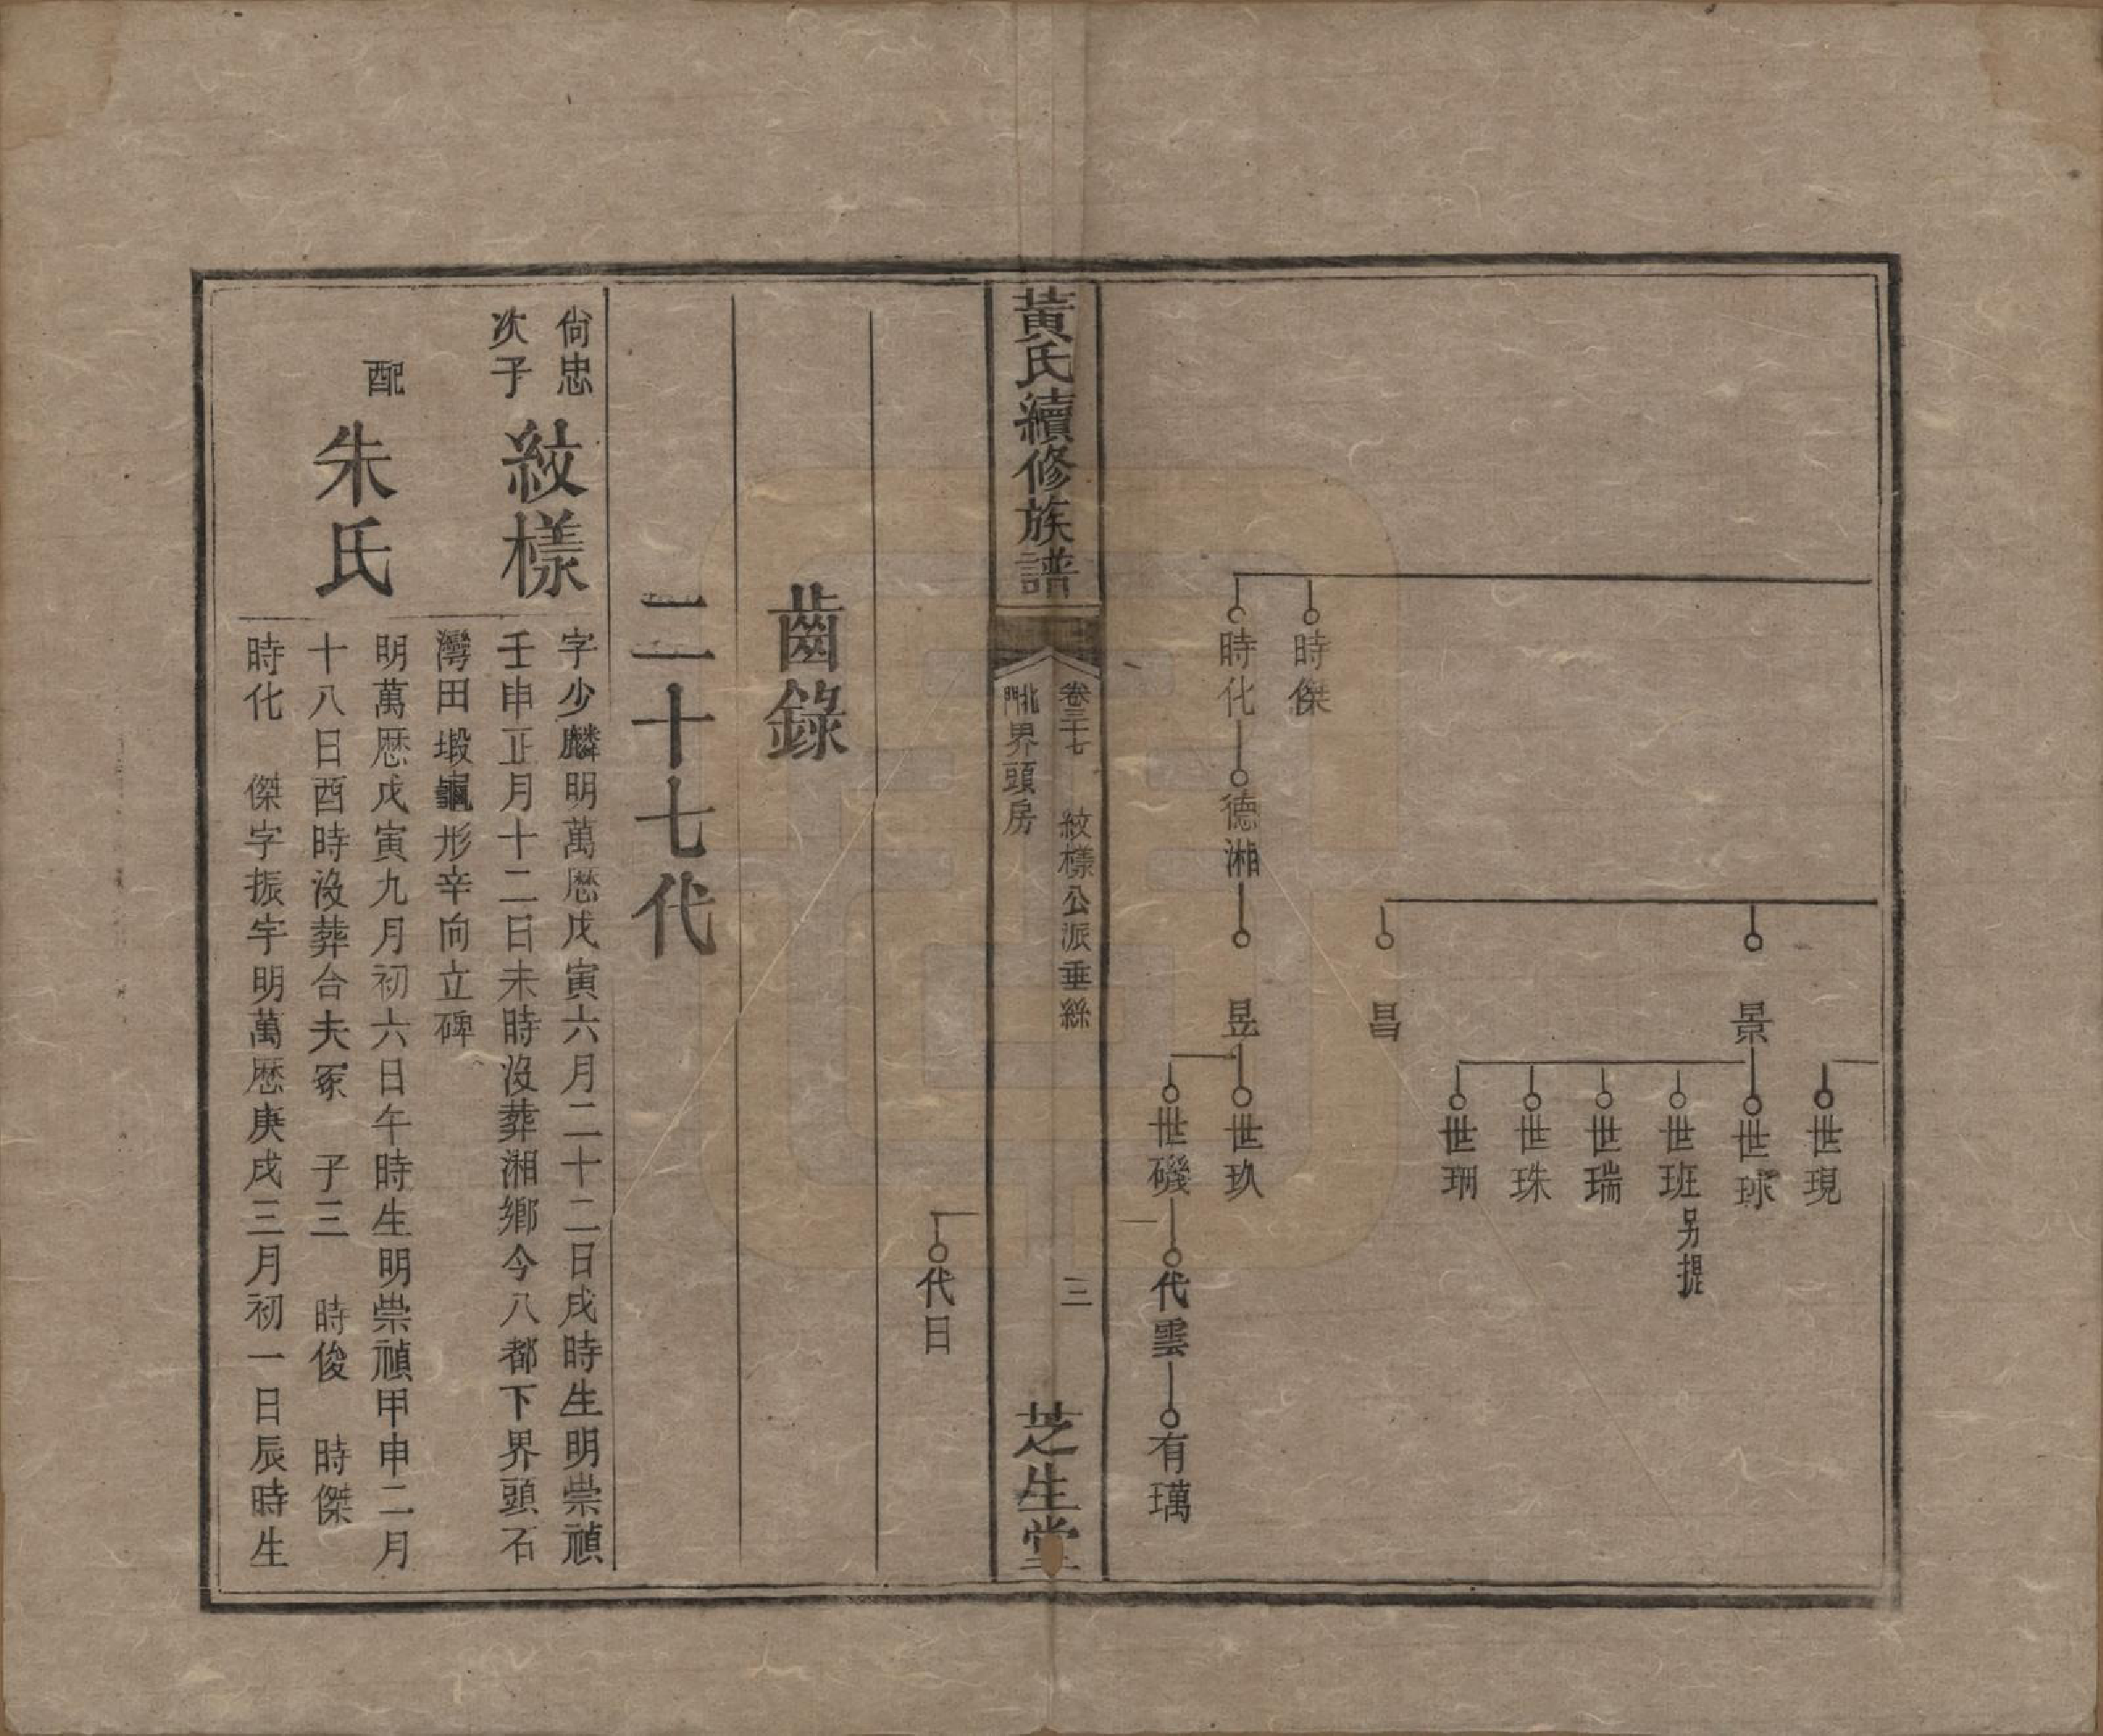 時傑
時化
德湘
景
昌
昱
世現
世球
世班另提
世瑞
世珠
世珊
世玖
世磯
代雲
有璊
黃氏續修族譜
卷三十七　紋樣公派垂絲
北門界頭房
三
芝生堂
代日
齒錄
二十七代
尙忠
次子
紋樣
字少麟明萬歷戊寅六月二十二日戌時生明崇禎
壬申正月十二日未時沒葬湘鄉今八都下界頭石
灣田塅龜形辛向立碑
配
朱氏
明萬歷戊寅九月初六日午時生明崇禎甲申二月
十八日酉時沒葬合夫冢　子三　時俊　時傑
時化　傑字振宇明萬歷庚戌三月初一日辰時生